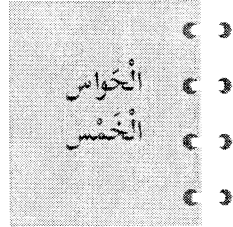 الْحَواس
الْخَمْس